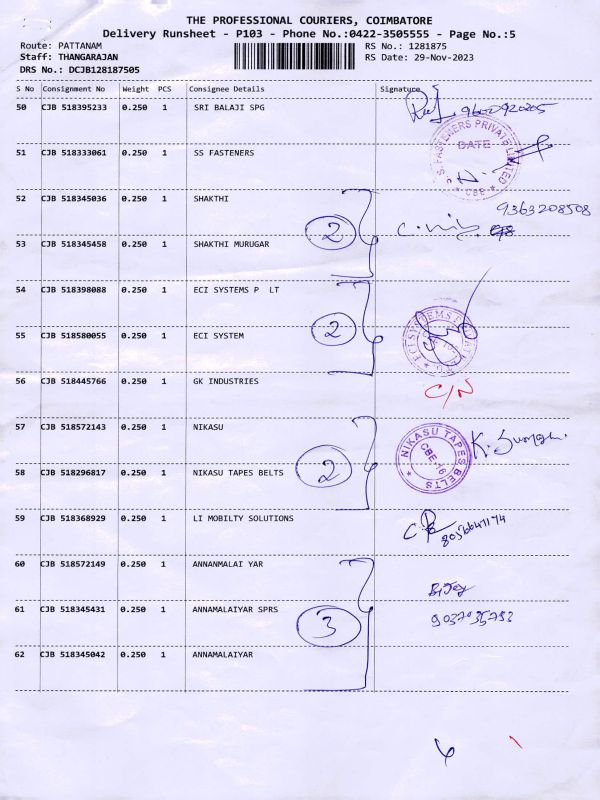 THE PROFESSIONAL COURIERS, COIMBATORE
Delivery Runsheet - P103 - Phone No.:0422-3505555 - Page No.:5
Route: PATTANAM RS No.: 1281875
Staff: THANGARAJAN RS Date: 29-Nov-2023
DRS No.: DCJB128187505
S No Consignment No Weight PCS Consignee Details Signature
50 CJB 518395233 0.250 1 SRI BALAJI SPG
51 CJB 518333061 0.250 1 SS FASTENERS
S.S. FASTENERS PRIVATE LIMITED
DATE
* CBE *
52 CJB 518345036 0.250 1 SHAKTHI 9363208508
2
53 CJB 518345458 0.250 1 SHAKTHI MURUGAR
54 CJB 518398088 0.250 1 ECI SYSTEMS P LT
2
55 CJB 518580055 0.250 1 ECI SYSTEM
56 CJB 518445766 0.250 1 GK INDUSTRIES C/N
57 CJB 518572143 0.250 1 NIKASU
NIKASU TAPES BELTS
CBE-16
2
58 CJB 518296817 0.250 1 NIKASU TAPES BELTS
59 CJB 518368929 0.250 1 LI MOBILTY SOLUTIONS
60 CJB 518572149 0.250 1 ANNANMALAI YAR
61 CJB 518345431 0.250 1 ANNAMALAIYAR SPRS
3
62 CJB 518345042 0.250 1 ANNAMALAIYAR